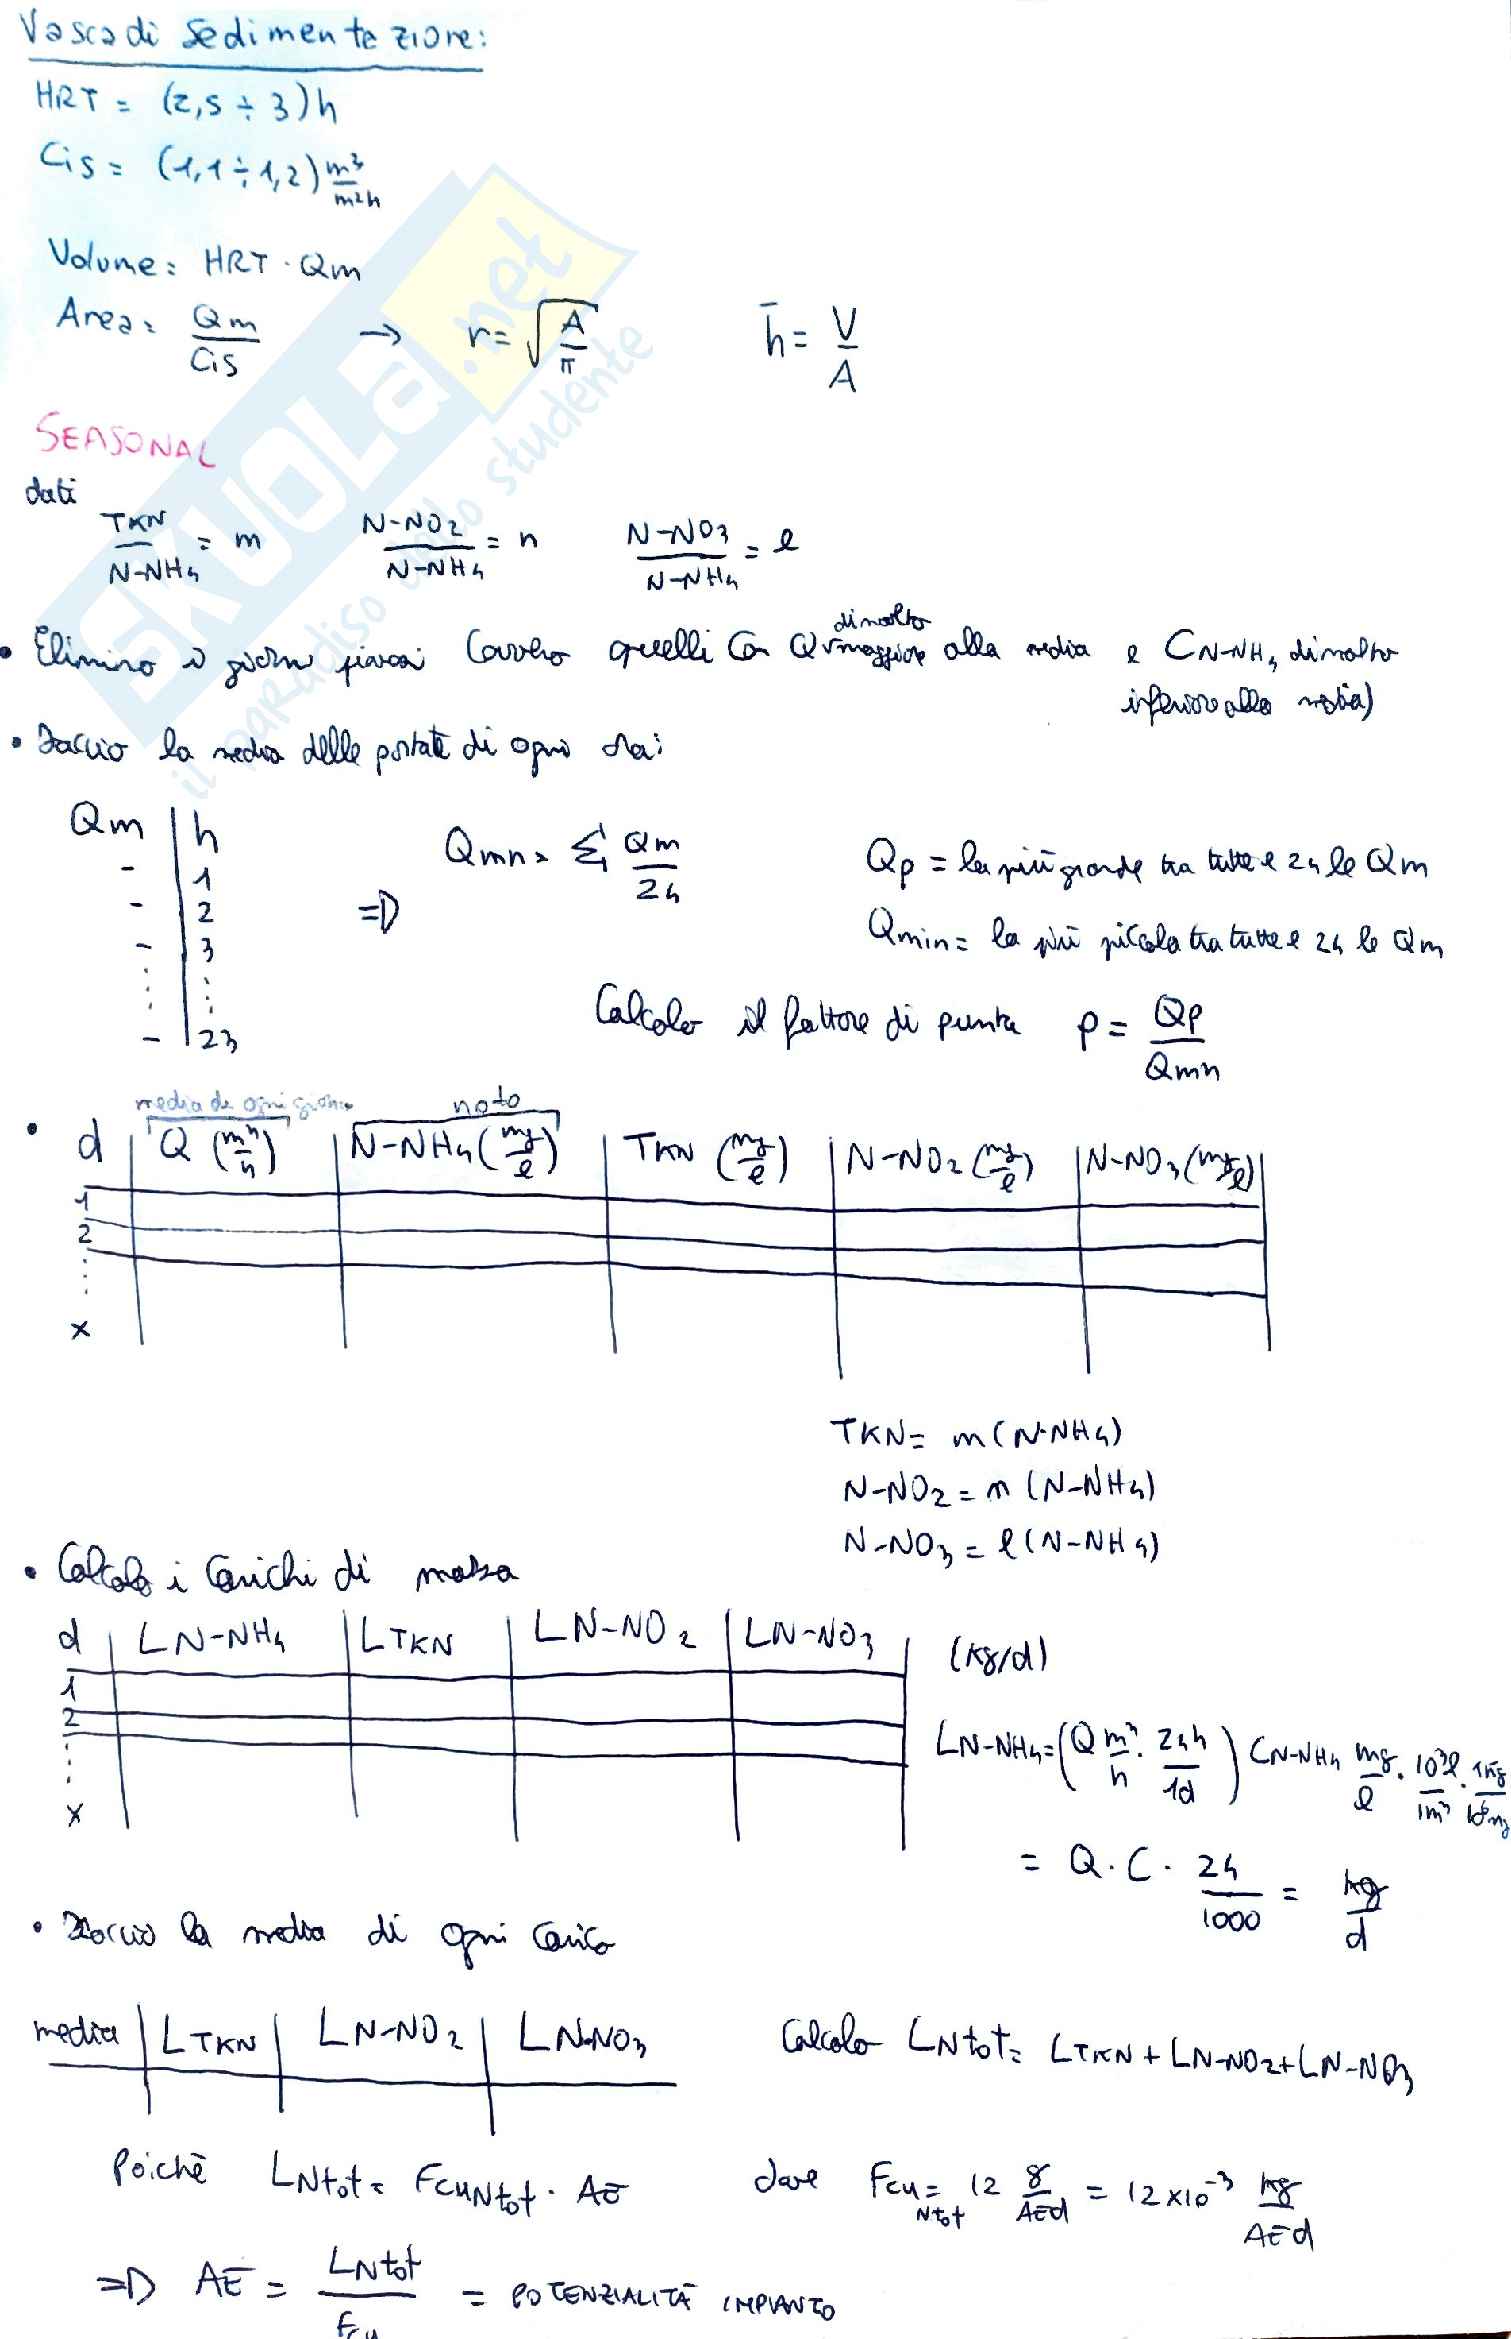 Vasca di sedimentazione:
HRT = (2,5 ÷ 3) h
Cis = (1,1 ÷ 1,2) m³/m²h
Volume = HRT · Qm
Area = Qm/Cis → r = √(A/π) h̄ = V/A
SEASONAL
dati
TKN/N-NH4 = m N-NO2/N-NH4 = n N-NO3/N-NH4 = l
• Elimino i giorni piovosi (ovvero quelli con Q di molto maggiore alla media e CN-NH4 di molto
inferiore alla media)
• Faccio la media delle portate di ogni ora:
Qm | h
- 1
- 2
- 3
- 23
=D Qmn = Σ Qm/24
Qp = la più grande tra tutte e 24 le Qm
Qmin = la più piccola tra tutte e 24 le Qm
Calcolo il fattore di punta p = Qp/Qmn
media di ogni giorno noto
• d | Q (m³/h) | N-NH4 (mg/l) | TKN (mg/l) | N-NO2 (mg/l) | N-NO3 (mg/l)
1
2
x
TKN = m (N-NH4)
N-NO2 = n (N-NH4)
N-NO3 = l (N-NH4)
• Calcolo i carichi di massa
d | LN-NH4 | LTKN | LN-NO2 | LN-NO3 (kg/d)
1
2
x
LN-NH4 = (Q m³/h · 24h/1d) CN-NH4 mg/l · 10³l/1m³ · 1kg/10⁶mg
= Q · C · 24/1000 = kg/d
• Faccio la media di ogni carico
media | LTKN | LN-NO2 | LN-NO3
Calcolo LNtot = LTKN + LN-NO2 + LN-NO3
Poichè LNtot = FcuNtot · AE dove FcuNtot = 12 g/AEd = 12x10⁻³ kg/AEd
=D AE = LNtot/Fcu = POTENZIALITÀ IMPIANTO
SKUOLA.net
il paradiso dello studente